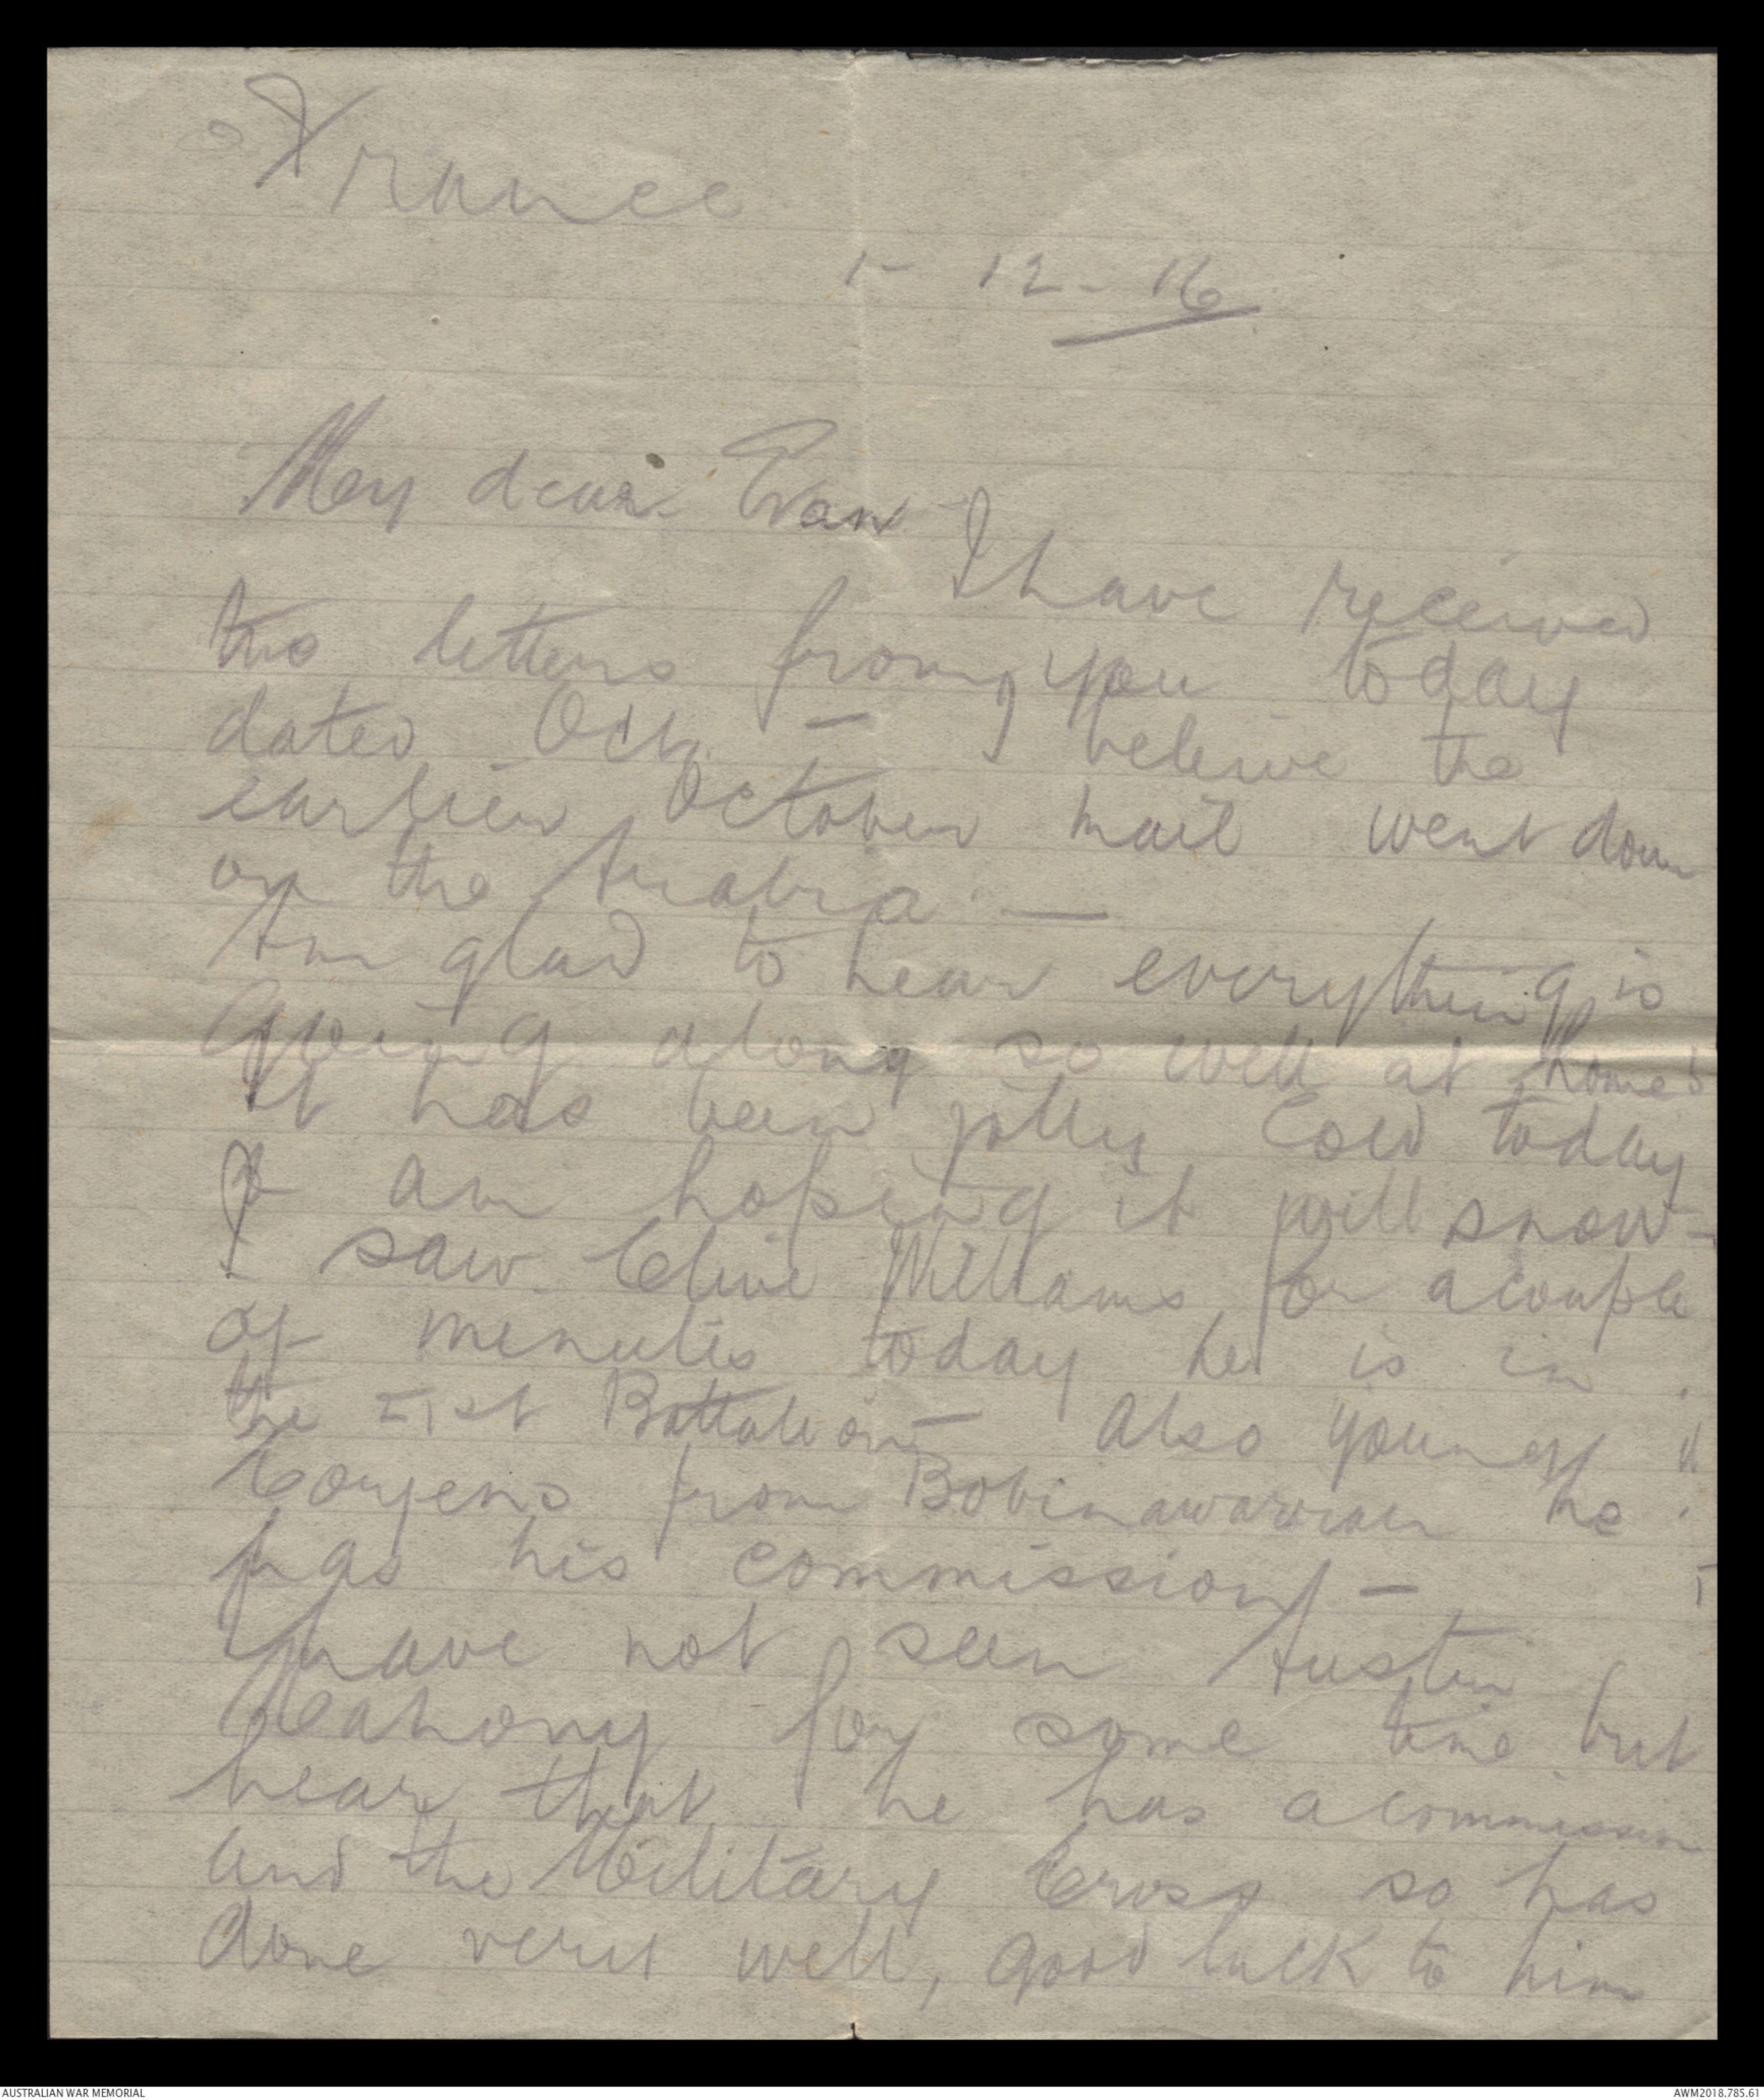 France
1-12-16
My dear Evan
I have received
two letters from you today
dated Oct. — I beleive the
earlier October mail went down
on the Arabia. —
Am glad to hear everything is
going along so well at home
It has been jolly cold today
I am hoping it will snow –
I saw Clive Williams for a couple
of minutes today he is in
the 51st Battalion – Also young
from he
has his commission –
I have not seen Austin
Mahony for some time but
hear that he has a commission
and the Military Cross so has
done very well, good luck to him
AUSTRALIAN WAR MEMORIAL
AWM2018.785.61